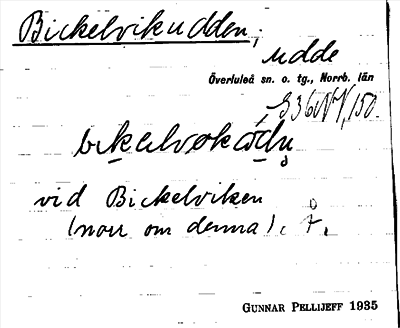 Bickelvikudden,
udde
Överluleå sn. o. tg., Norrb. län
vid Bickelviken
(norr om denna).
GUNNAR PELLIJEFF 1935